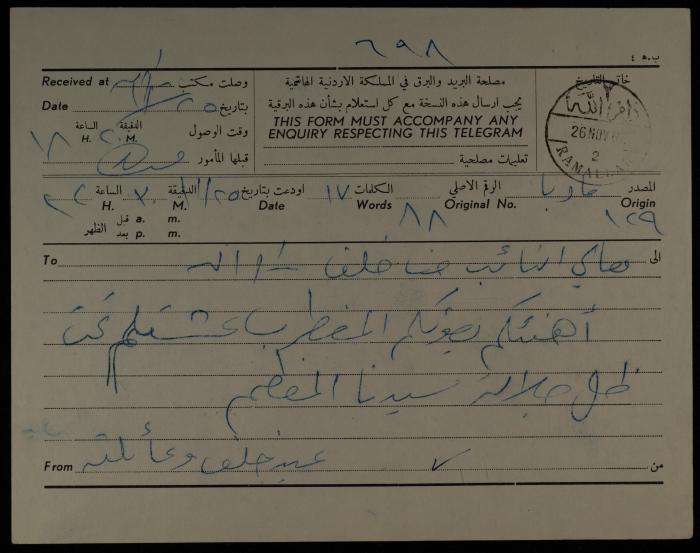 ٦٩٨
ب.ه ٤
Received at وصلت مكتب
مصلحة البريد والبرق في المملكة الاردنية الهاشمية
خاتم التاريخ
Date ٢٥ بتاريخ
يجب ارسال هذه النسخة مع كل استعلام بشأن هذه البرقية
THIS FORM MUST ACCOMPANY ANY
ENQUIRY RESPECTING THIS TELEGRAM
الساعة H. الدقيقة M. وقت الوصول
١٨
قبلها المأمور
تعليمات مصلحية
رام الله
26 NOV
2
RAMALLAH
الساعة H. الدقيقة M. ٣٠
اودعت بتاريخ Date ٢٥
الكلمات Words ١٧
الرقم الاصلي Original No. ٨٨
المصدر Origin مادبا
١٢٩
قبل a. m.
بعد p. m. الظهر
To معالي النائب حنا خلف رام الله الى
أهنئكم بفوزكم
ظل جلالة سيدنا المعظم
From خلف وعائلته من